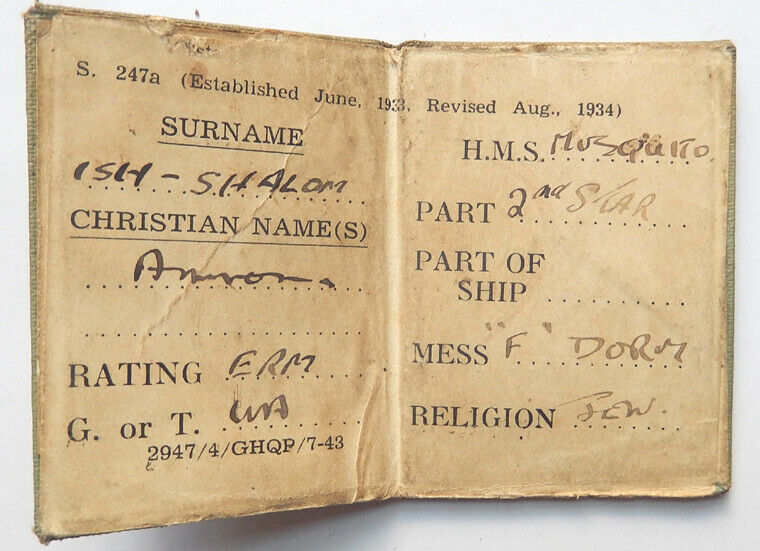 S. 247a (Established June, 1933, Revised Aug., 1934)
SURNAME
ISH - SHALOM
CHRISTIAN NAME(S)
Amnon.
RATING ERM
G. or T. UA
2947/4/GHQP/7-43
H.M.S. MOSQUITO
PART 2nd STAR
PART OF
SHIP
MESS "F" DORM
RELIGION JEW.